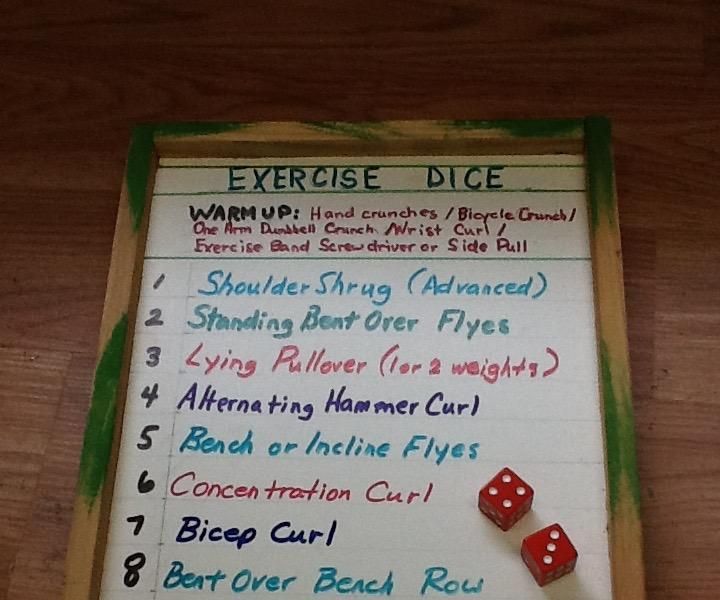 EXERCISE DICE
WARM UP: Hand crunches / Bicycle Crunch /
One Arm Dumbbell Crunch / Wrist Curl /
Exercise Band Screwdriver or Side Pull
1 Shoulder Shrug (Advanced)
2 Standing Bent Over Flyes
3 Lying Pullover (1 or 2 weights)
4 Alternating Hammer Curl
5 Bench or Incline Flyes
6 Concentration Curl
7 Bicep Curl
8 Bent Over Bench Row